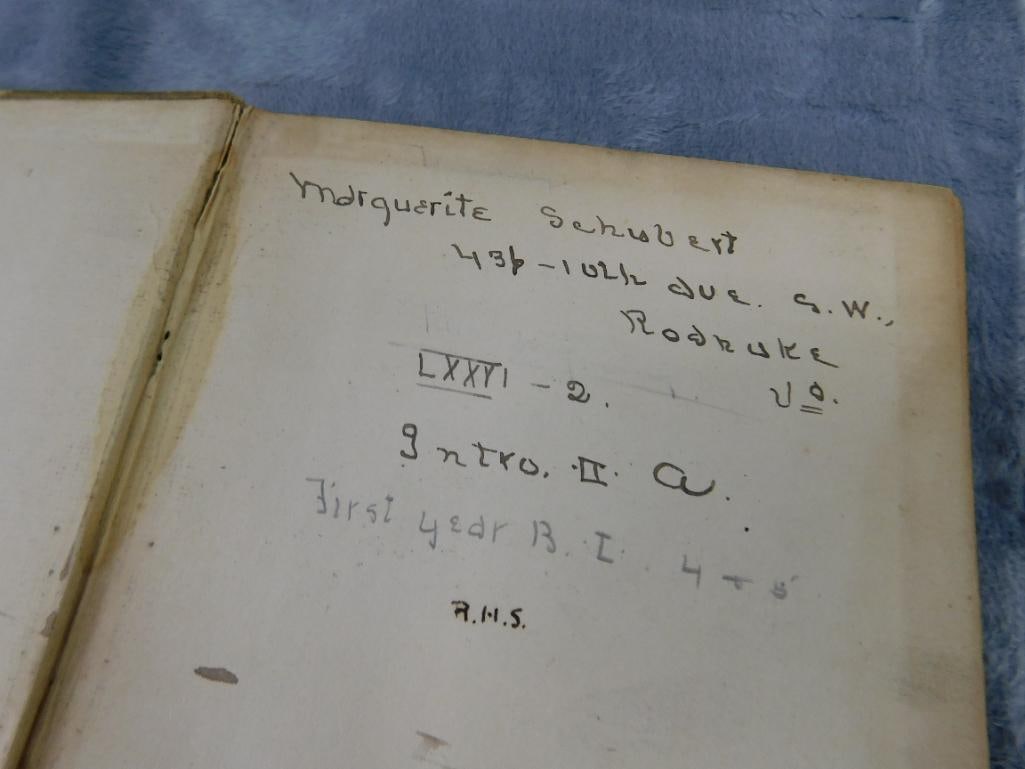 Marguerite Schubert
436-10th Ave. S.W.,
Roanoke
Va.
LXXVI - 2.
Intro. II. A.
First year B. I. 4 + 5
R.H.S.